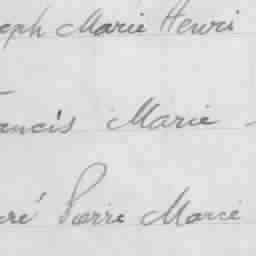 eph Marie Henri
ancis Marie -
ré Pierre Marie